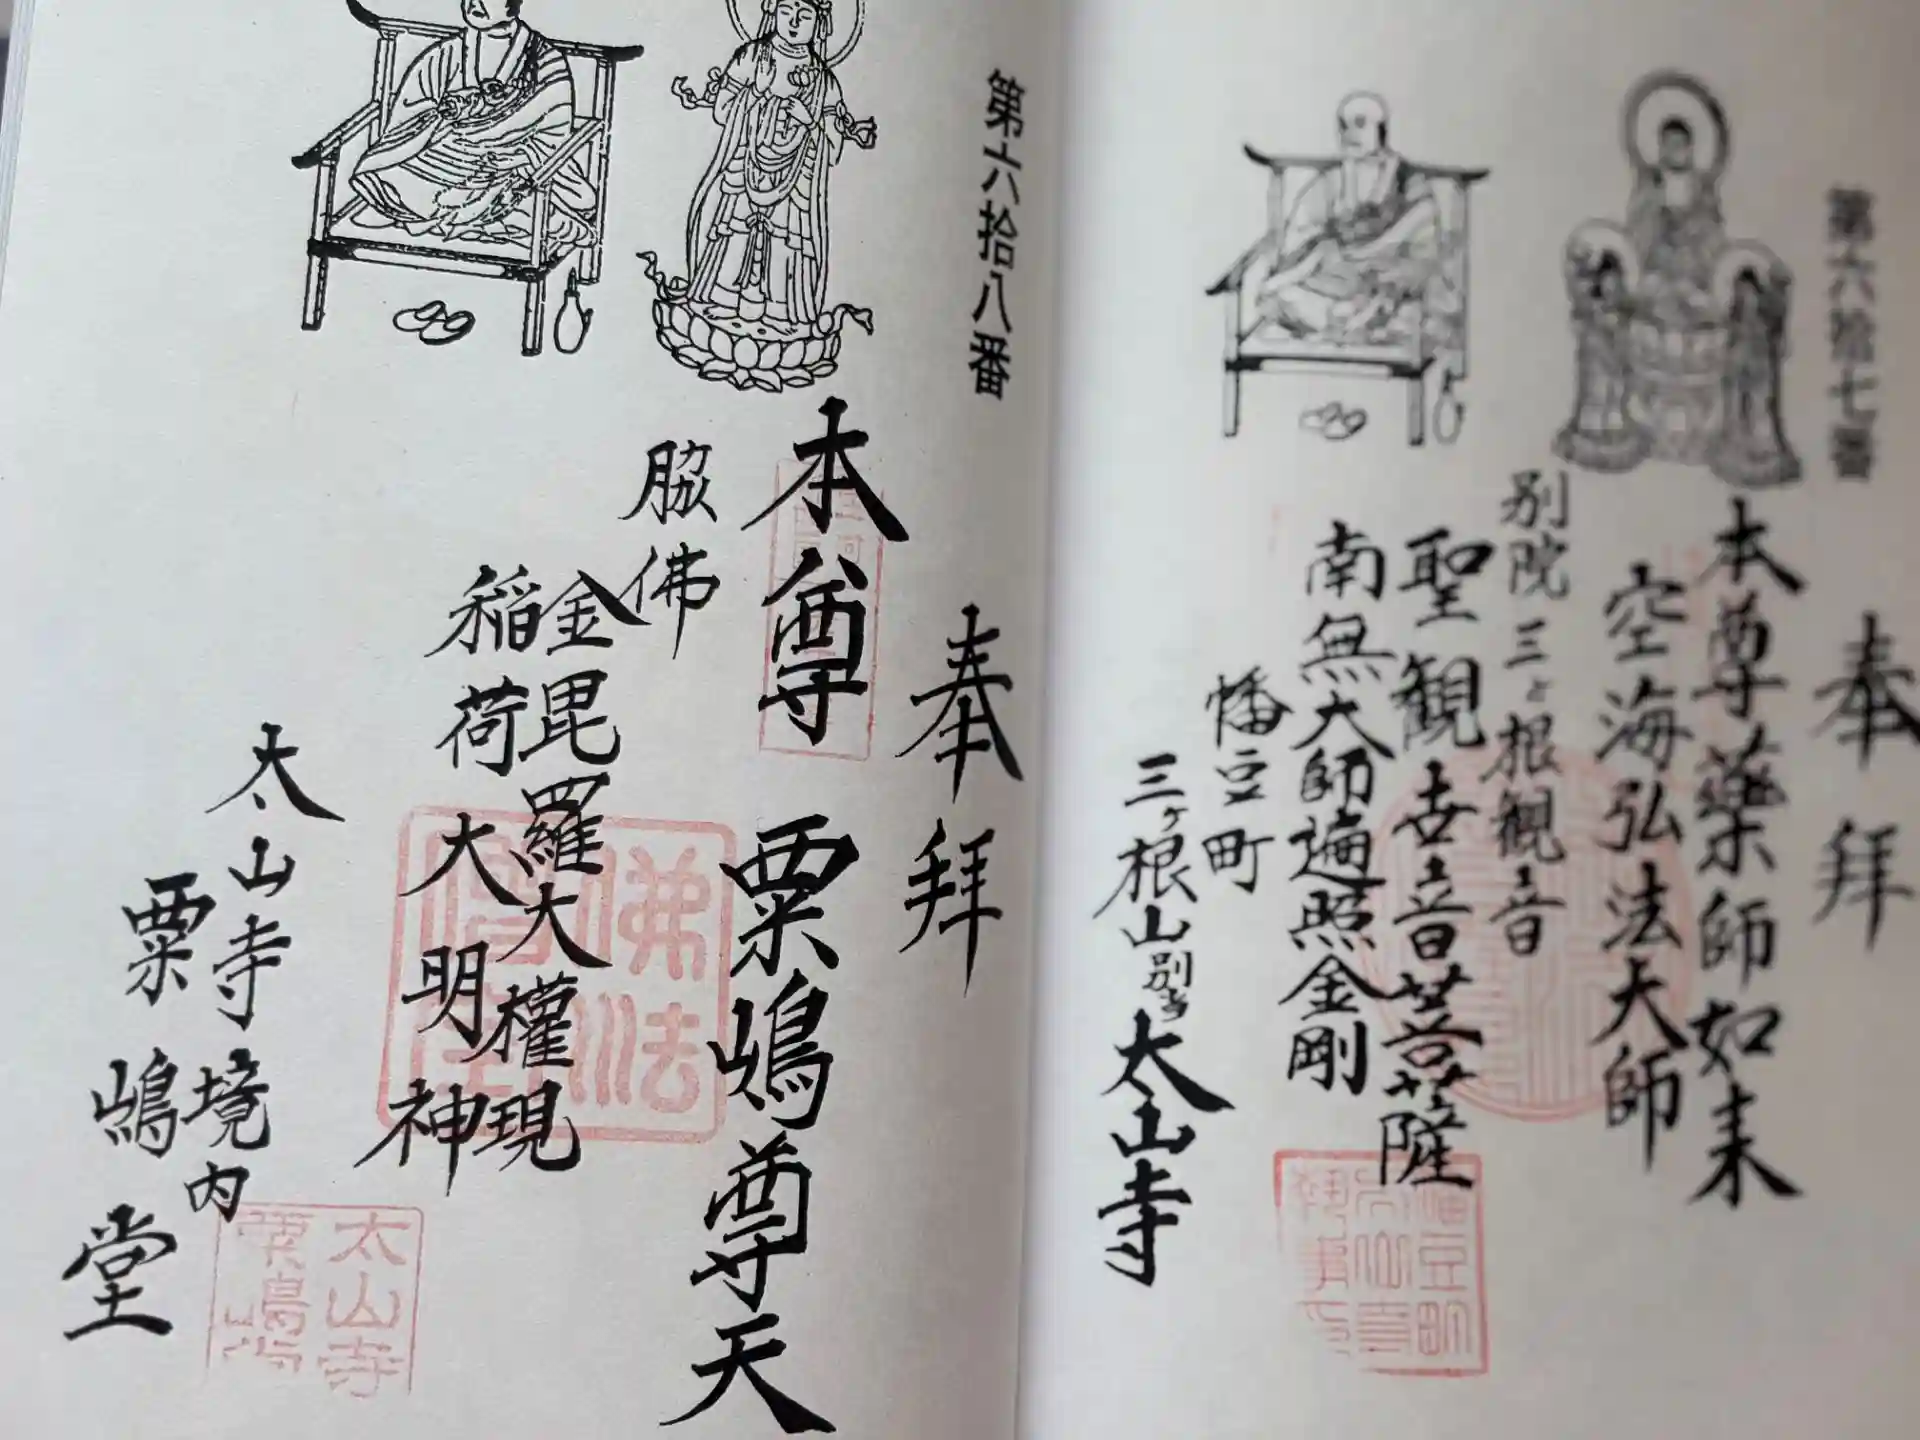 第六拾七番
奉拝
本尊藥師如来
空海弘法大師
別院三ヶ根観音
聖観世音菩薩
南無大師遍照金剛
幡豆町
三ヶ根山別当太山寺
第六拾八番
奉拝
本尊 粟嶋尊天
脇佛
金毘羅大權現
稲荷大明神
太山寺境内
粟嶋堂
佛法僧寶
太山寺
粟嶋堂